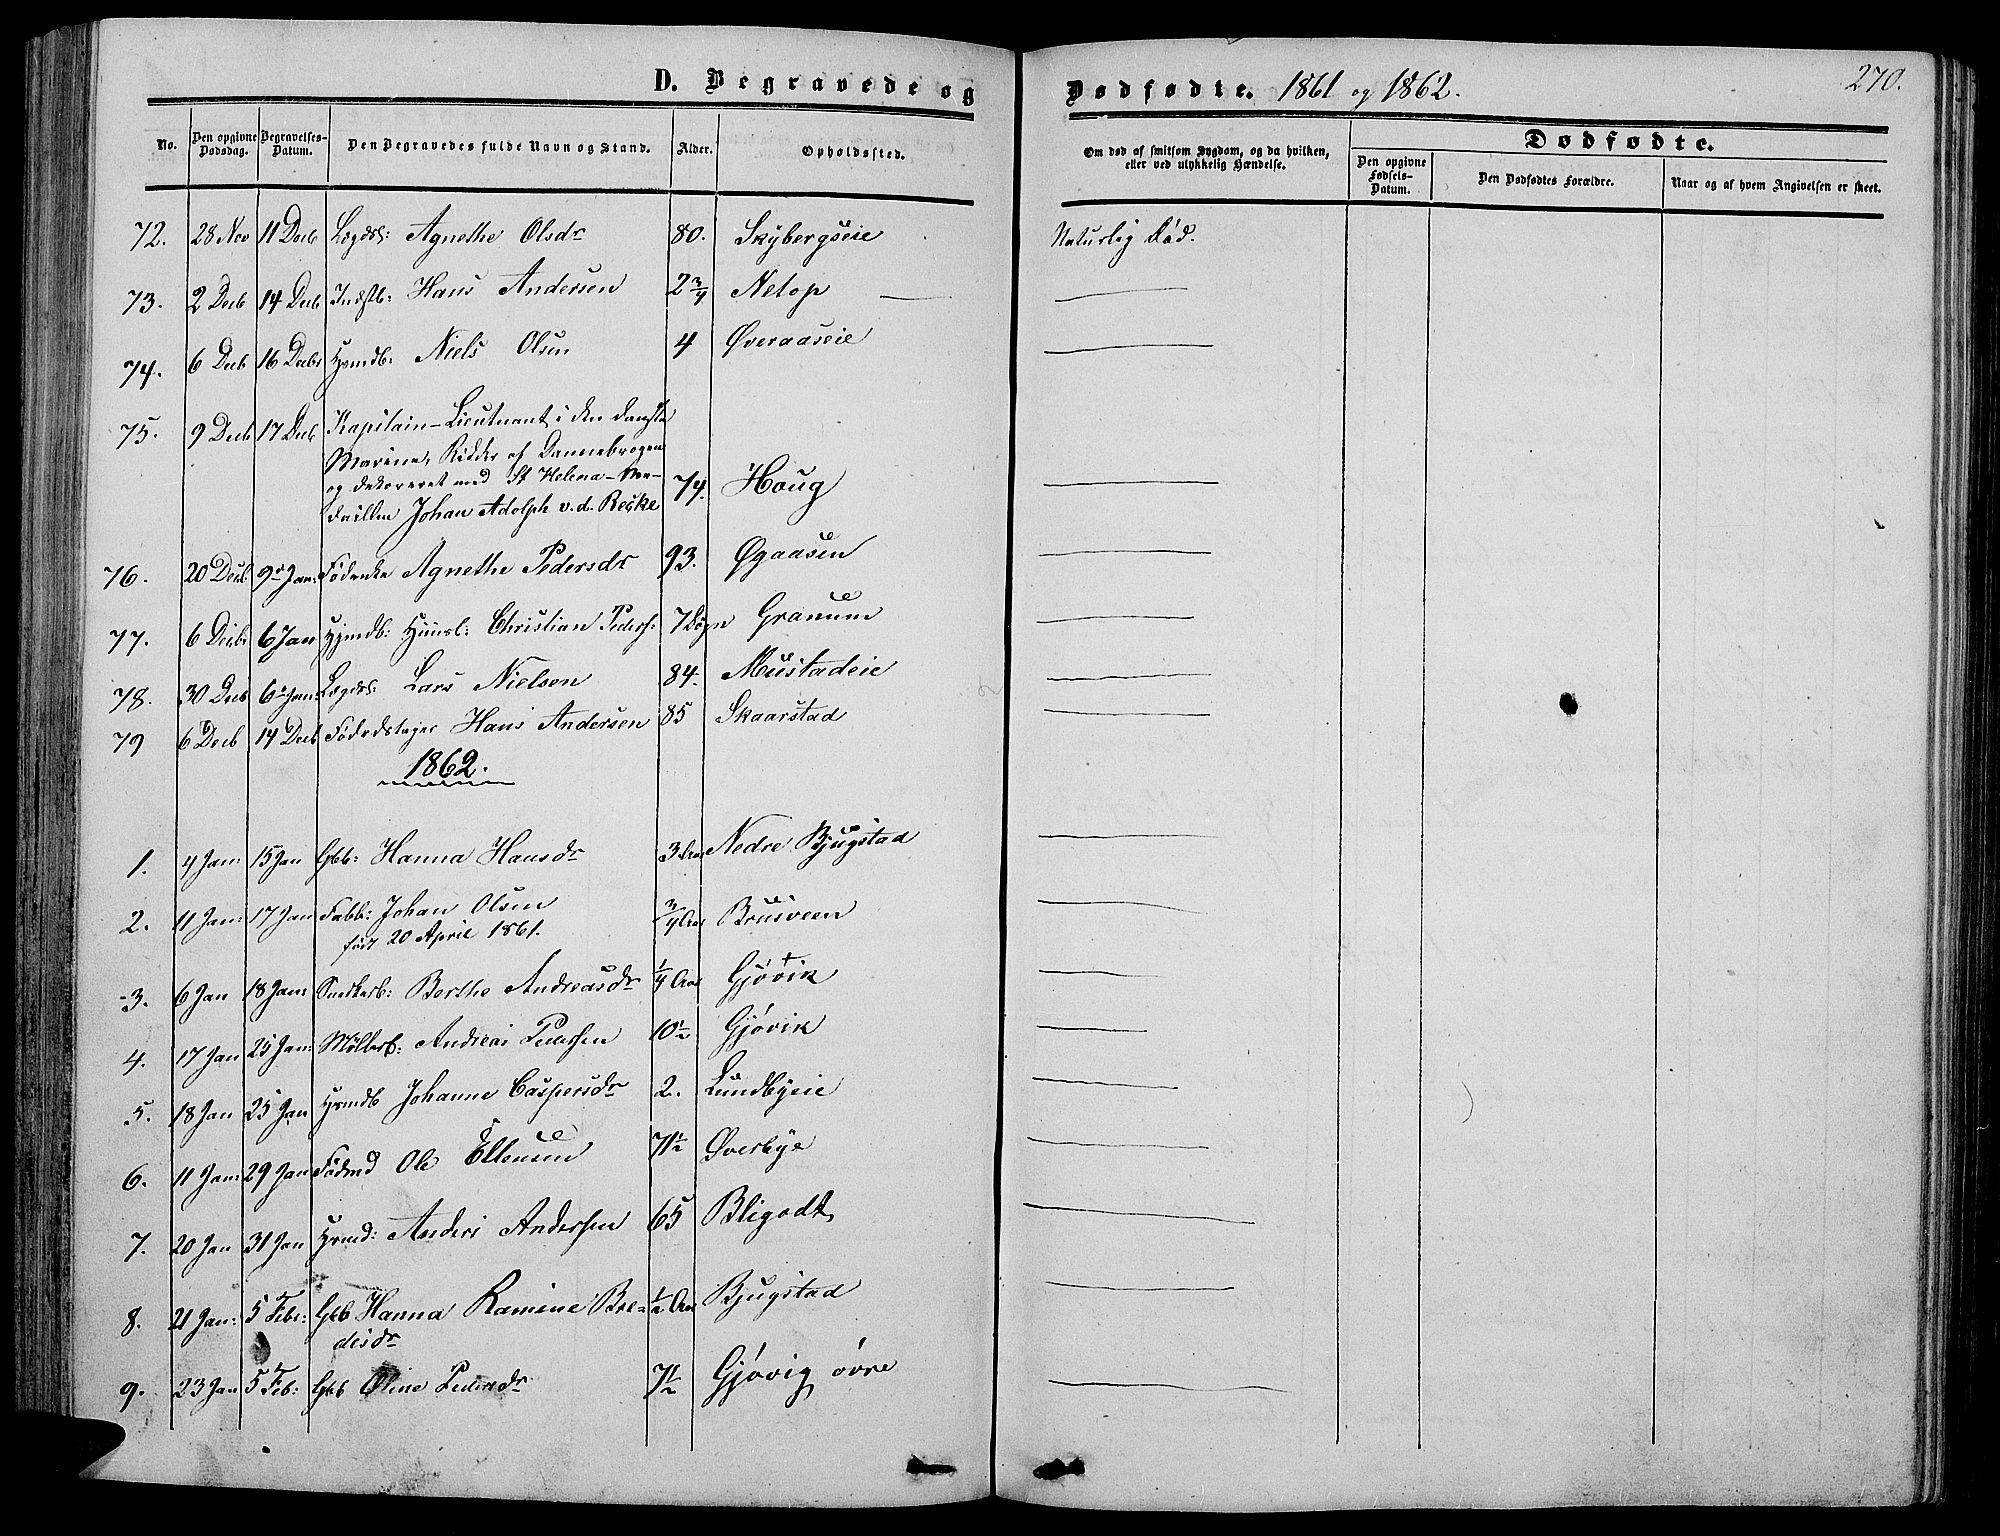 D. Begravede og Dødfødte. 1861 og 1862. 270.
No. Den opgivne Dødsdag. Begravelses-Datum. Den Begravedes fulde Navn og Stand. Alder. Opholdssted. Om død af smitsom Sygdom, og da hvilken, eller ved ulykkelig Hændelse. Dødfødte.
Den opgivne Fødsels-Datum. Den Dødfødtes Forældre. Naar og af hvem Angivelsen er skeet.
72. 28 Nov 11 Decb Lægdsl: Agnethe Olsdr 80. Skybergseie Naturlig Død.
73. 2 Decb 14 Decb Indstb: Hans Andersen 2 3/4 Netop
74. 6 Decb 16 Decbr Hsmdb: Niels Olsen 4 Øveraaseie
75. 9 Decb 17 Decb Kapitain-Lieutnant i den danske
Marine, Ridder af Dannebrogen
og dekoreret med St Helena-Me-
daillen Johan Adolph v.d. Recke 74. Houg
76. 20 Decb 9 Jan: Føderenke Agnethe Pedersdr 93. Øgaasen
77. 6 Decbr 6 Jan Christian Peders: 7 Døgn Granum
78. 30 Decb 6 Jan: Lægdsl: Lars Nielsen 84. Mustadeie
79 6 Decb 14 Decb Føderdstager Hans Andersen 85 Skaarstad
1862.
1. 4 Jan: 15 Jan Gbb: Hanna Hansdr 3 Aar Nedre Bjugstad
2. 11 Jan: 17 Jan Fabb: Johan Olsen 3/4 Aar Brusveen
født 20 April 1861.
3. 6 Jan 18 Jan: Snedkerb: Berthe Andreasdr 1/4 Aar Gjøvik
4. 17 Jan 25 Jan: Møllerb: Andreas Pedersen 10 1/2 Gjøvik
5. 18 Jan 25 Jan Hsmdb Johanne Caspersdr 2. Lundbyeie
6. 11 Jan: 29 Jan Føderd Ole Ellensen 71 1/2 Øverbye
7. 20 Jan 31 Jan Hsmd: Anders Andersen 65 Bligodt
8. 21 Jan: 5 Febr: Gbb Hanna Ramine Bre- 1/2 Aar Bjugstad
desdr
9. 23 Jan 5 Feb: Gbb Oline Pedersdr 7 1/2 Gjøvig øvre